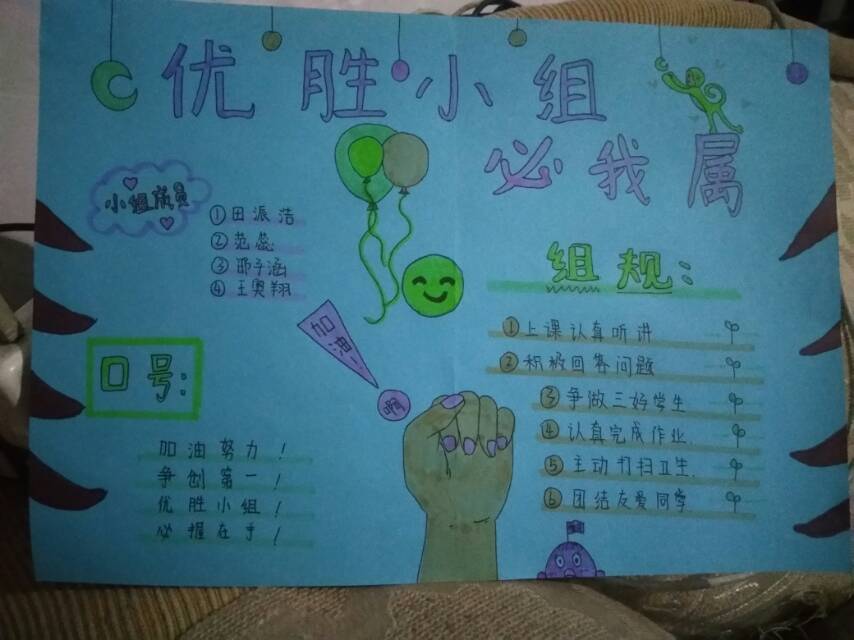 优胜小组
必我属
小组成员
①田派浩
②范蕊
③邵子涵
④王奥翔
加油!
啊
口号:
加油努力!
争创第一!
优胜小组!
必握在手!
组规:
①上课认真听讲
②积极回答问题
③争做三好学生
④认真完成作业.
⑤主动打扫卫生.
⑥团结友爱同学.